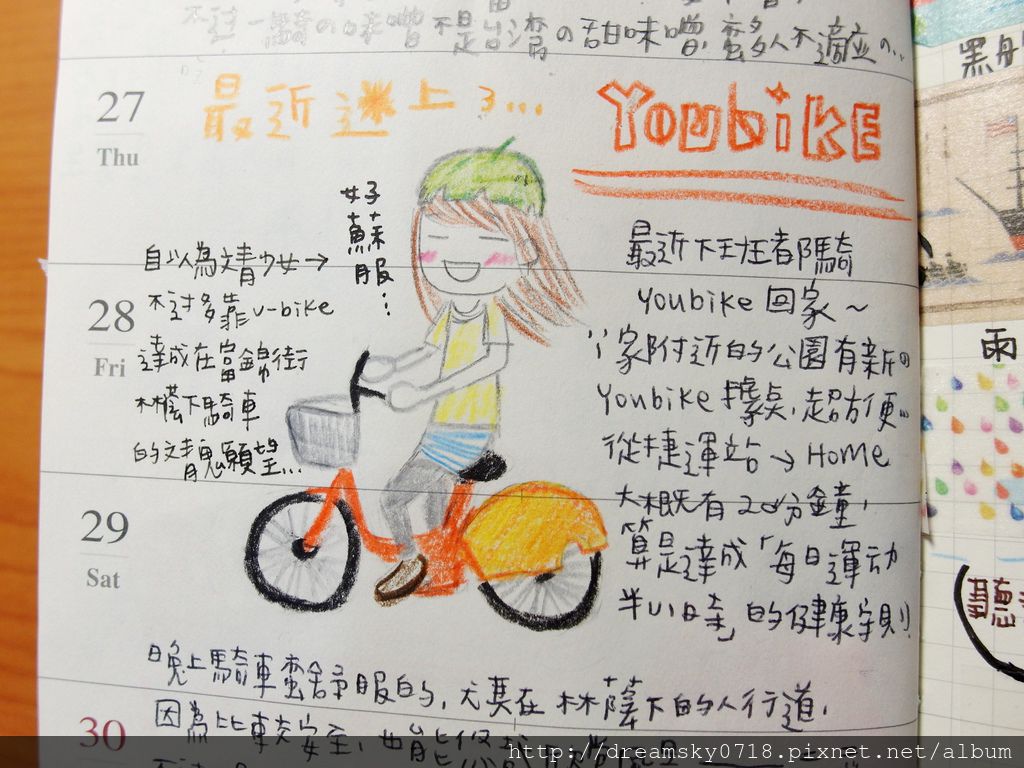 不過一騎の味噌不是台灣の甜味噌,蠻多人不適應の...
27
Thu
最近迷上了... Youbike
好
蘇
服
...
自以為文青少女→
不過多靠u-bike
達成在富錦街
林蔭下騎車
的文青願望...
最近下班都騎
Youbike回家~
家附近的公園有新の
Youbike據點,超方便..
從捷運站→Home
大概有20分鐘,
算是達成「每日運动
半小時」的健康守則!
28
Fri
29
Sat
晚上騎車蠻舒服的,尤其在林蔭下的人行道,
30
因為比較安全,也能
黑船
雨
聽
http://dreamsky0718.pixnet.net/album